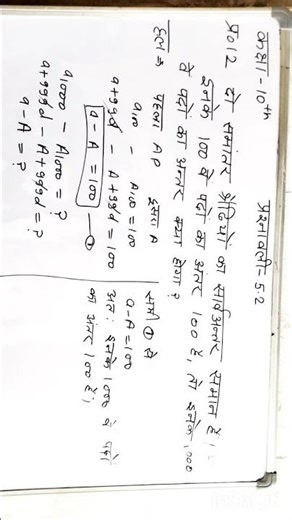 कक्षा - 10th        प्रश्नावली - 5.2
प्र0 12 दो समांतर श्रेढ़ियों का सार्वअन्तर समान है।
इनके 100 वें पदों का अंतर 100 है, तो इनके 1000
वें पदों का अन्तर क्या होगा?
हल ⇒ पहला AP        दूसरा A
a100 - A100 = 100
a+99d - A+99d = 100
a - A = 100 — ①
a1000 - A1000 = ?
a+999d - A+999d = ?
a - A = ?
समी ① से
a - A = 100
अतः इनके 1000 वें पदों
का अंतर 100 है,